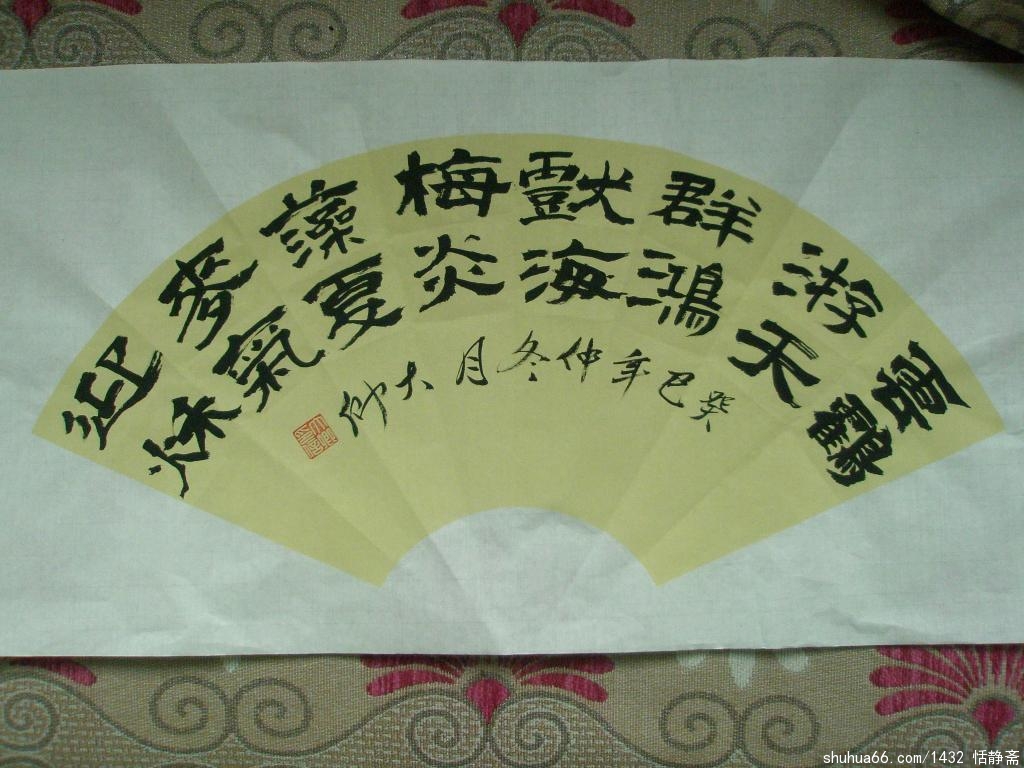 雲鸖
游天
群鴻
戲海
梅炎
藻夏
麥氣
迎秌
癸巳年仲冬月大
shuhua66.com/1432 恬静斋